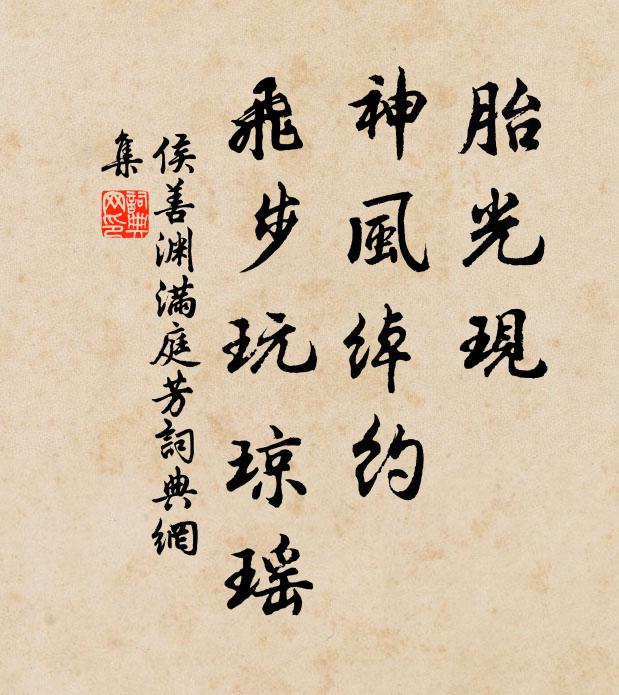 胎光現
神風綽約
飛步玩琼瑶
侯善渊滿庭芳詞典網
集
詞典網印